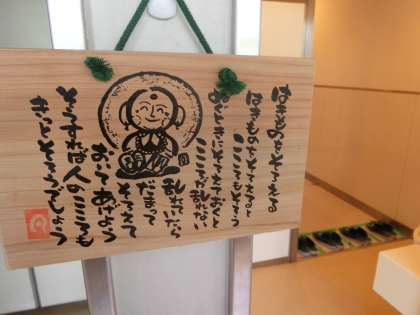 はきものをそろえる
はきものをそろえると
こころもそろう
ぬぐときにそろえておくと
こころが乱れない
乱れていたら
だまって
そろえて
おいてあげよう
そうすれば人のこころも
きっとそろうでしょう